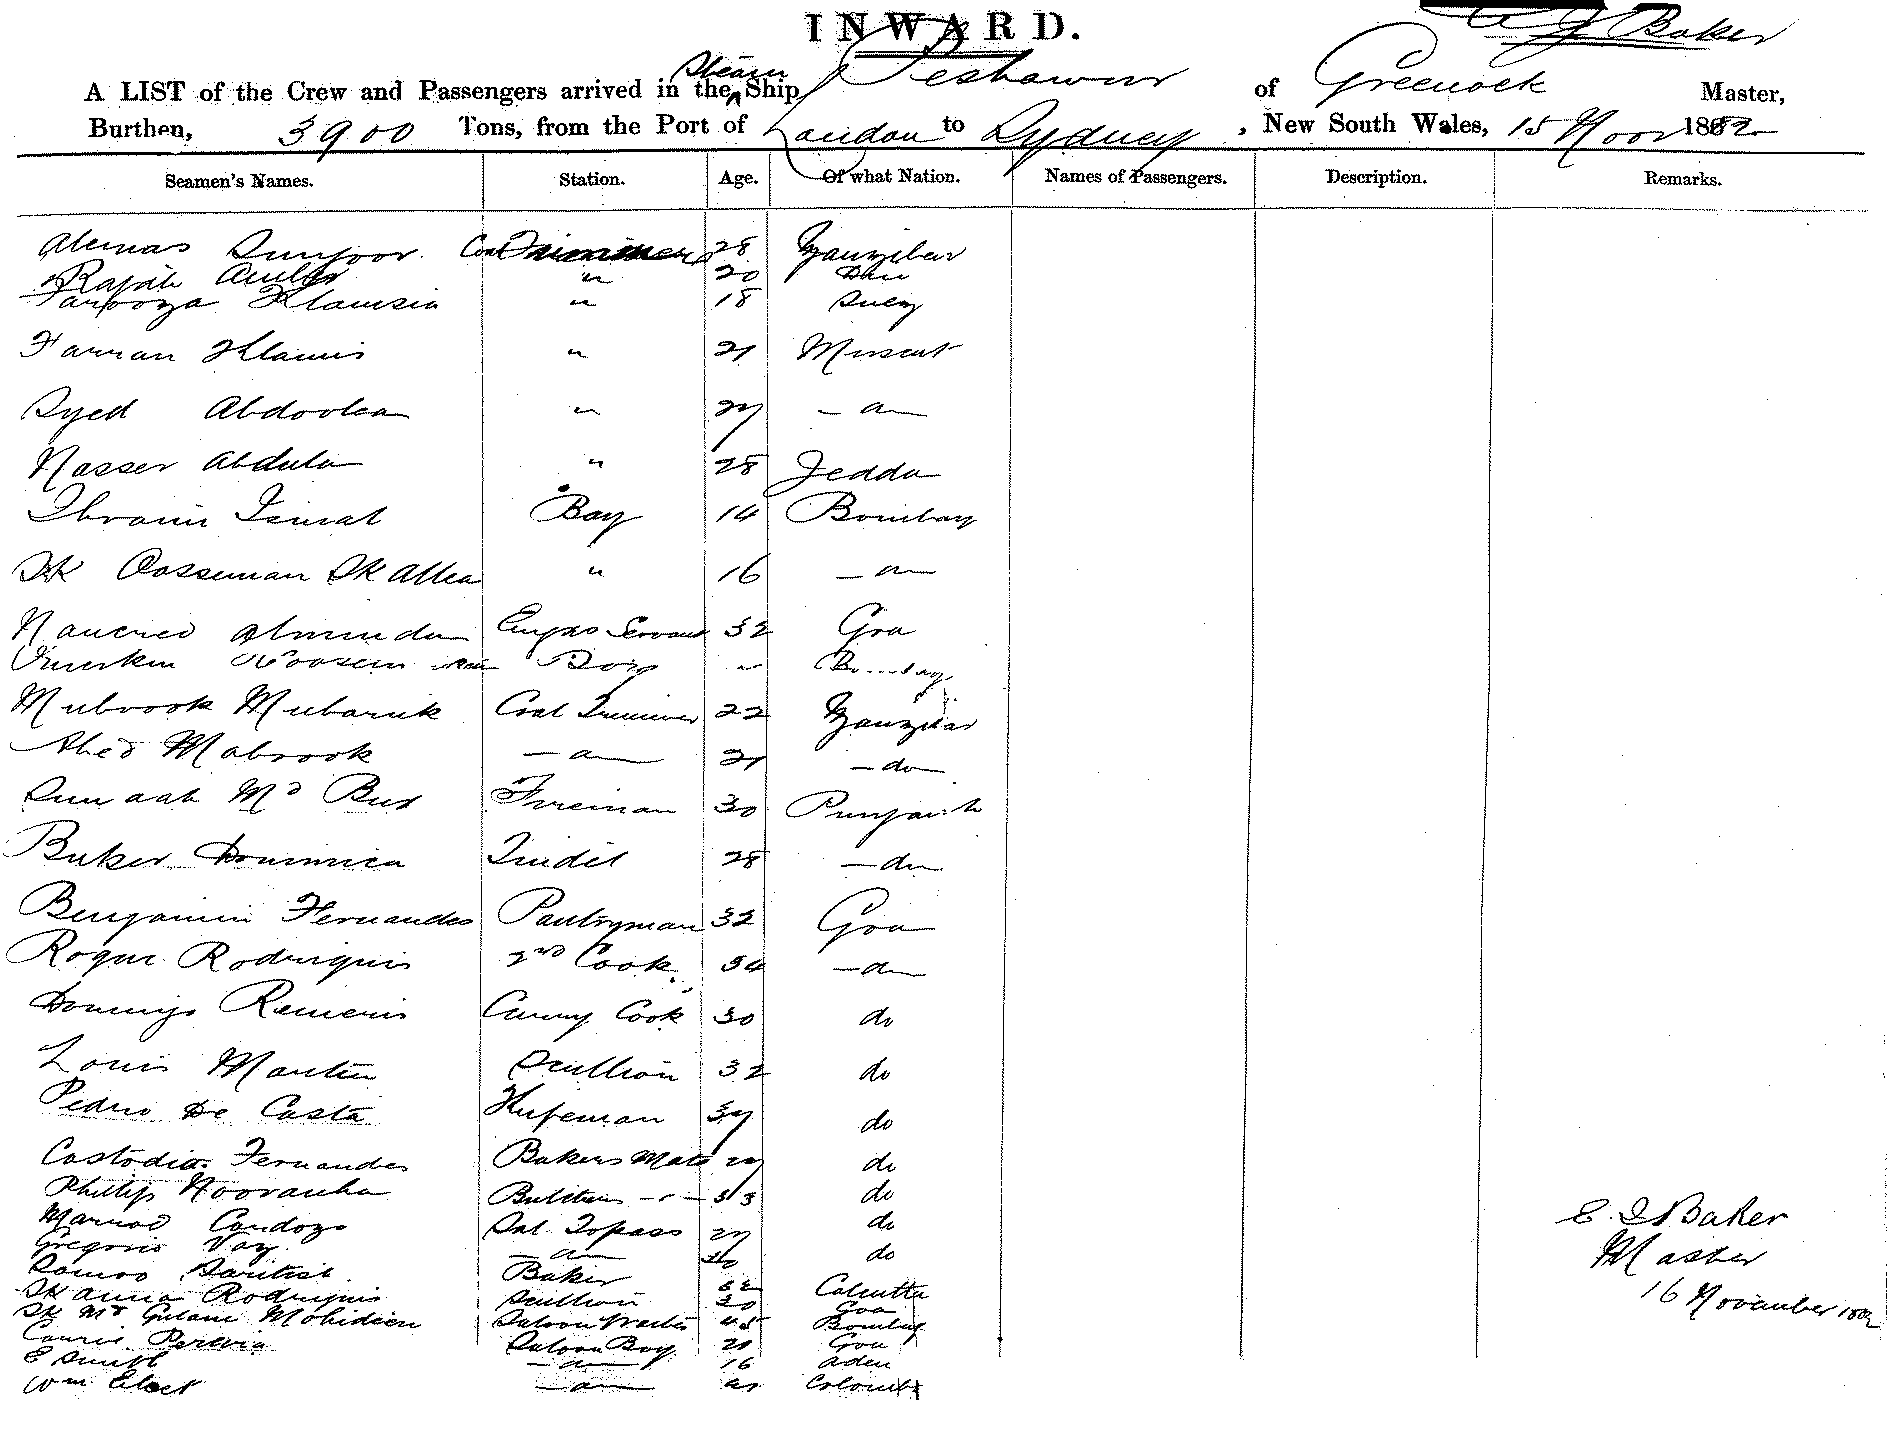 INWARD.
E J Baker
A LIST of the Crew and Passengers arrived in the Steam Ship Peshawur of Greenock Master,
Burthen, 3900 Tons, from the Port of London to Sydney, New South Wales, 15 Novr 1882
Seamen's Names. Station. Age. Of what Nation. Names of Passengers. Description. Remarks.
Coal Trimmer 28 Zanzibar
Rajab " 20
Farooza Khamsin " 18 Suez
Farran Khamis " 21 Muscat
Syed Abdoolca " 27 - do
Nasser Abdula " 28 Jedda
Ibraim Ismal Boy 14 Bombay
Sk Cosseman Sk Allea " 16 - do
Almeida Engrs Servant 32 Goa
Hoosein Boy " Bombay
Mubrook Mubaruk Coal Trimmer 22 Zanzibar
Abed Mabrook - do 21 - do
Md Bux Fireman 30 Punjaub
Baker Dominica Tindel 28 - do
Benjamin Fernandes Pantryman 32 Goa
Roque Rodriguis 2nd Cook 34 - do
Domingo Remeris Curry Cook 30 do
Louis Martin Scullion 32 do
Pedro De Costa 37 do
Custodia Fernandes Bakers Mate 27 do
Phillip Nooranha 33 do
Cardozo Sal. Topass 27 do
Gregorio Vaz - do do
Baker 32 Calcutta
Rodriguis Scullion 30 Goa
Sk Md Gulam Mohideen Saloon Waiter 45 Bombay
Pereria Saloon Boy 21 Goa
E Smith - do 16 Aden
Wm - do Colombo
E J Baker
Master
16 November 1882